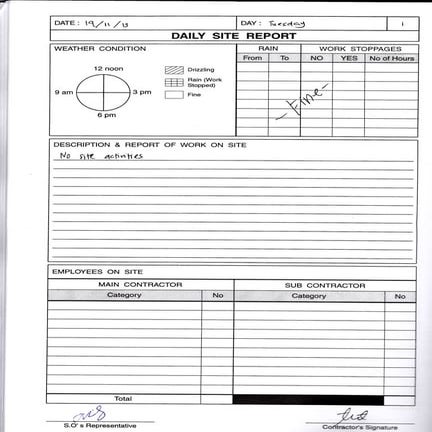 DATE : 19/11/13 DAY : Tuesday 1
DAILY SITE REPORT
WEATHER CONDITION RAIN WORK STOPPAGES
From To NO YES No of Hours
12 noon
9 am 3 pm
6 pm
Drizzling
Rain (Work Stopped)
Fine
- Fine -
DESCRIPTION & REPORT OF WORK ON SITE
No site activities
EMPLOYEES ON SITE
MAIN CONTRACTOR SUB CONTRACTOR
Category No Category No
Total
S.O's Representative Contractor's Signature